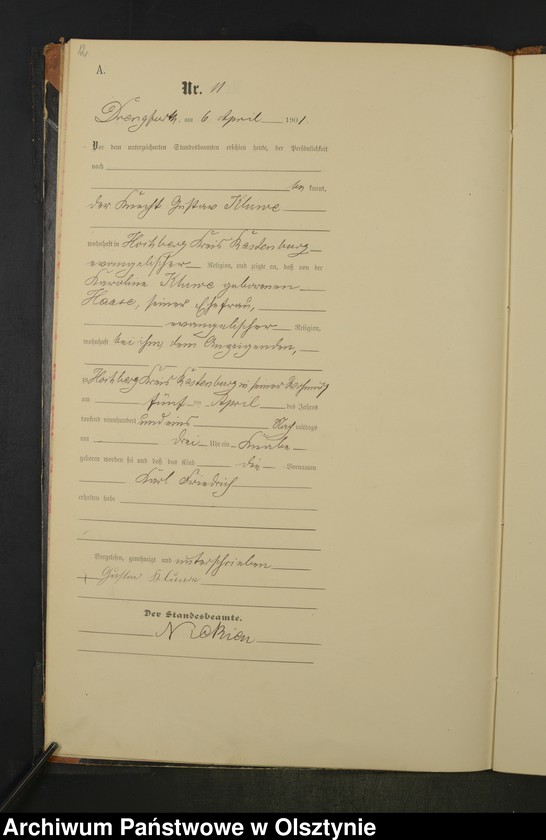 12
A.
Nr. 11
Drengfurth, am 6 April 1901
Vor dem unterzeichneten Standesbeamten erschien heute, der Persönlichkeit
nach
bekannt,
der Knecht Gustav Kluwe
wohnhaft in Kreis Rastenburg
evangelischer Religion, und zeigte an, daß von der
Karoline Kluwe geborenen
Haase, seiner Ehefrau,
evangelischer Religion,
wohnhaft bei ihm, dem Anzeigenden,
zu Kreis Rastenburg in seiner Wohnung
am fünf ten April des Jahres
tausend neunhundert und eins Nach mittags
um drei Uhr ein Knabe
geboren worden sei und daß das Kind die Vornamen
Karl Friedrich
erhalten habe
Vorgelesen, genehmigt und unterschrieben
Gustav Kluwe
Der Standesbeamte.
Archiwum Państwowe w Olsztynie